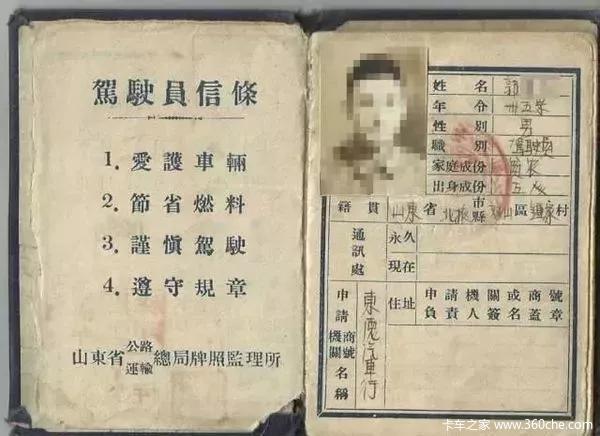 駕駛員信條
1. 愛護車輛
2. 節省燃料
3. 謹慎駕駛
4. 遵守規章
山東省公路運輸總局牌照監理所
姓名 郭
年分 卅五
性別 男
職別 駕駛員
家庭成份
出身成份
籍貫 山東省 市縣 區 村
通訊處
永久
現在
申請商號機關名稱 東
住址 申請機關或商號負責人簽名蓋章
卡车之家 www.360che.com